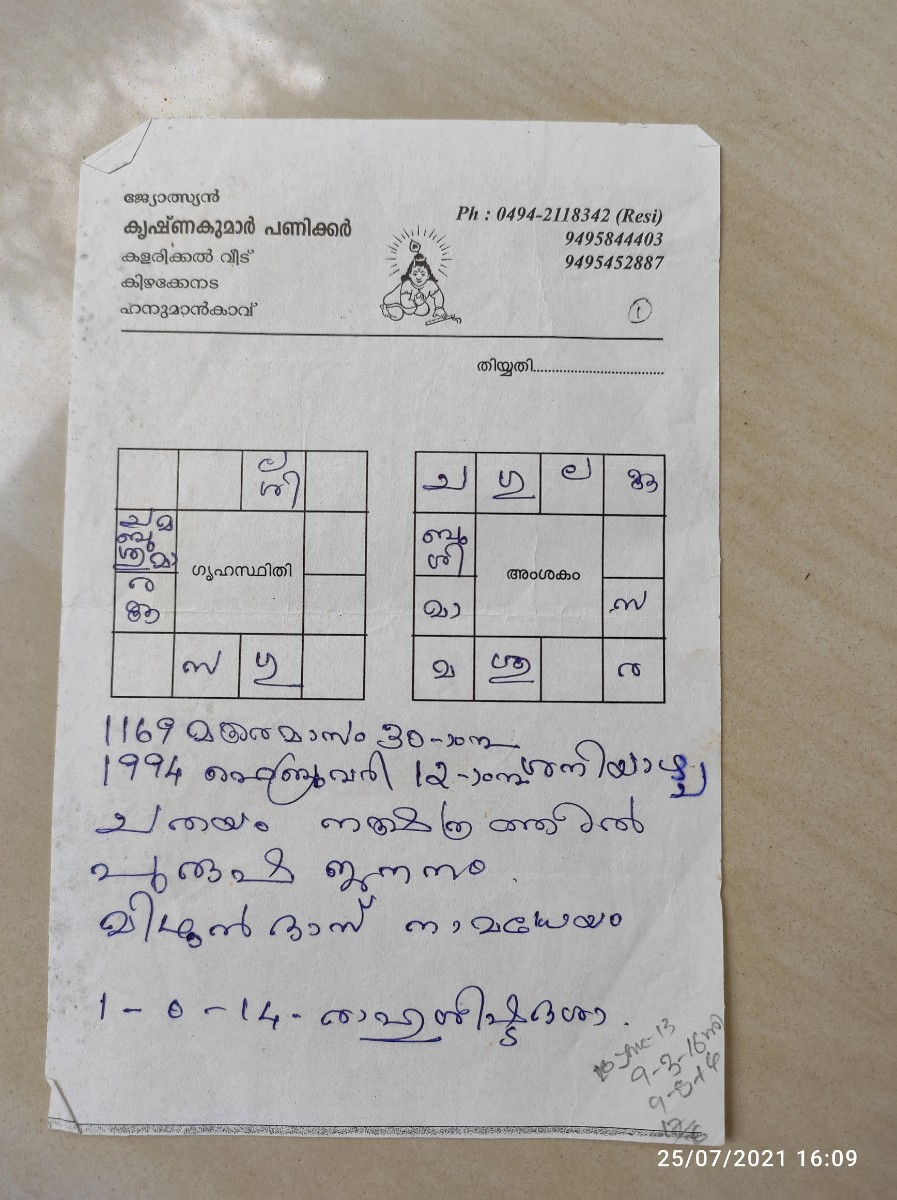 ജ്യോത്സ്യൻ
കൃഷ്ണകുമാർ പണിക്കർ
കളരിക്കൽ വീട്
കിഴക്കേനട
ഹനുമാൻകാവ്
Ph : 0494-2118342 (Resi)
9495844403
9495452887
1
തിയ്യതി...................................
ല
ശി
ച മ
ബു
ശു മാ
ര
സ ഗു
ഗൃഹസ്ഥിതി
ച ഗു ല
ബു
ശി
മാ സ
മ ശു ര
അംശകം
1169 മകരമാസം 30-ാംനു
1994 ഫെബ്രുവരി 12-ാംനു ശനിയാഴ്ച
ചതയം നക്ഷത്രത്തിൽ
പുരുഷ ജനനം
മിഥുൻ ദാസ് നാമധേയം
1 - 0 - 14 - രാഹുശിഷ്ടദശാ.
25/07/2021 16:09